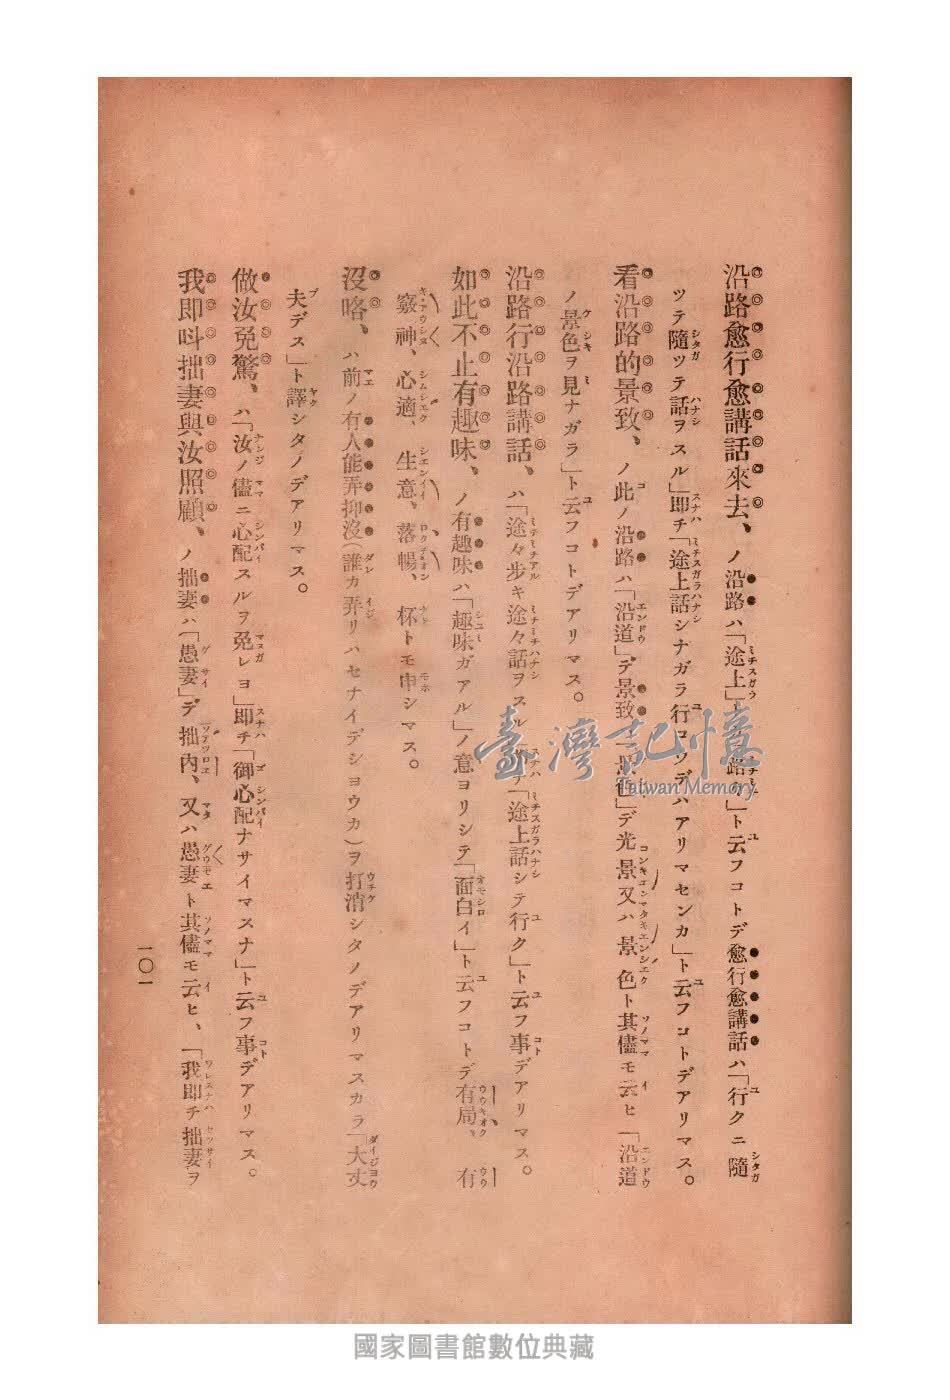 沿路愈行愈講話來去、ノ沿路ハ「途上」ト云フコトデ愈行愈講話ハ「行クニ隨
ツテ隨ツテ話ヲスル」即チ「途上話シナガラ行コソデハアリマセンカ」ト云フコトデアリマス。
看沿路的景致、ノ此ノ沿路ハ「沿道」デ景致ハ「景色」デ光景又ハ景色ト其儘モ云ヒ「沿道
ノ景色ヲ見ナガラ」ト云フコトデアリマス。
沿路行沿路講話、ハ「途々步キ途々話ヲスル」即チ「途上話シテ行ク」ト云フ事デアリマス。
如此不止有趣味、ノ有趣味ハ「趣味ガアル」ノ意ヨリシテ「面白イ」ト云フコトデ有局、有
竅神、心適、生意、落暢、杯トモ申シマス。
沒咯、ハ前ノ有人能弄抑沒(誰カ弄リハセナイデシヨウカ)ヲ打消シタノデアリマスカラ「大丈
夫デス」ト譯シタノデアリマス。
做汝免驚、ハ「汝ノ儘ニ心配スルヲ免レヨ」即チ「御心配ナサイマスナ」ト云フ事デアリマス。
我即呌拙妻與汝照顧、ノ拙妻ハ「愚妻」デ拙內、又ハ愚妻ト其儘モ云ヒ、「我即チ拙妻ヲ
一〇一
臺灣記憶
Taiwan Memory
國家圖書館數位典藏